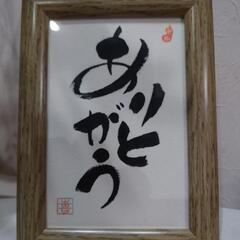 ありとがう